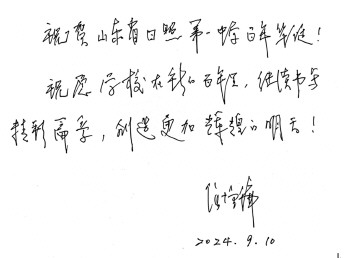 祝贺山东省日照第一中学百年华诞！
祝愿学校在新的百年里，继续书写
精彩篇章，创造更加辉煌的明天！
2024.9.10